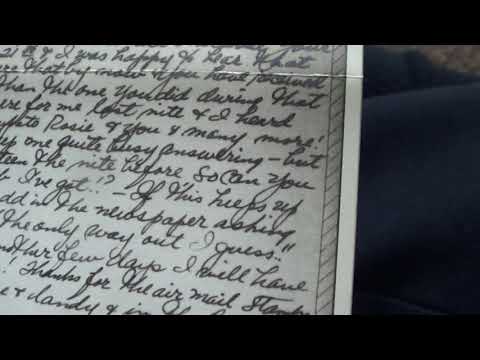 your
21st & I was happy to hear that
sure that by now you have received
than the one you did during that
here for me last nite & I heard
to Rosie & you & many more!
one quite busy answering - but
teen the nite before so can you
I've got!? - If this keeps up
add in the newspaper asking
the only way out I guess!!
another few days I will have
! Thanks for the air mail Stamps
& dandy & in the